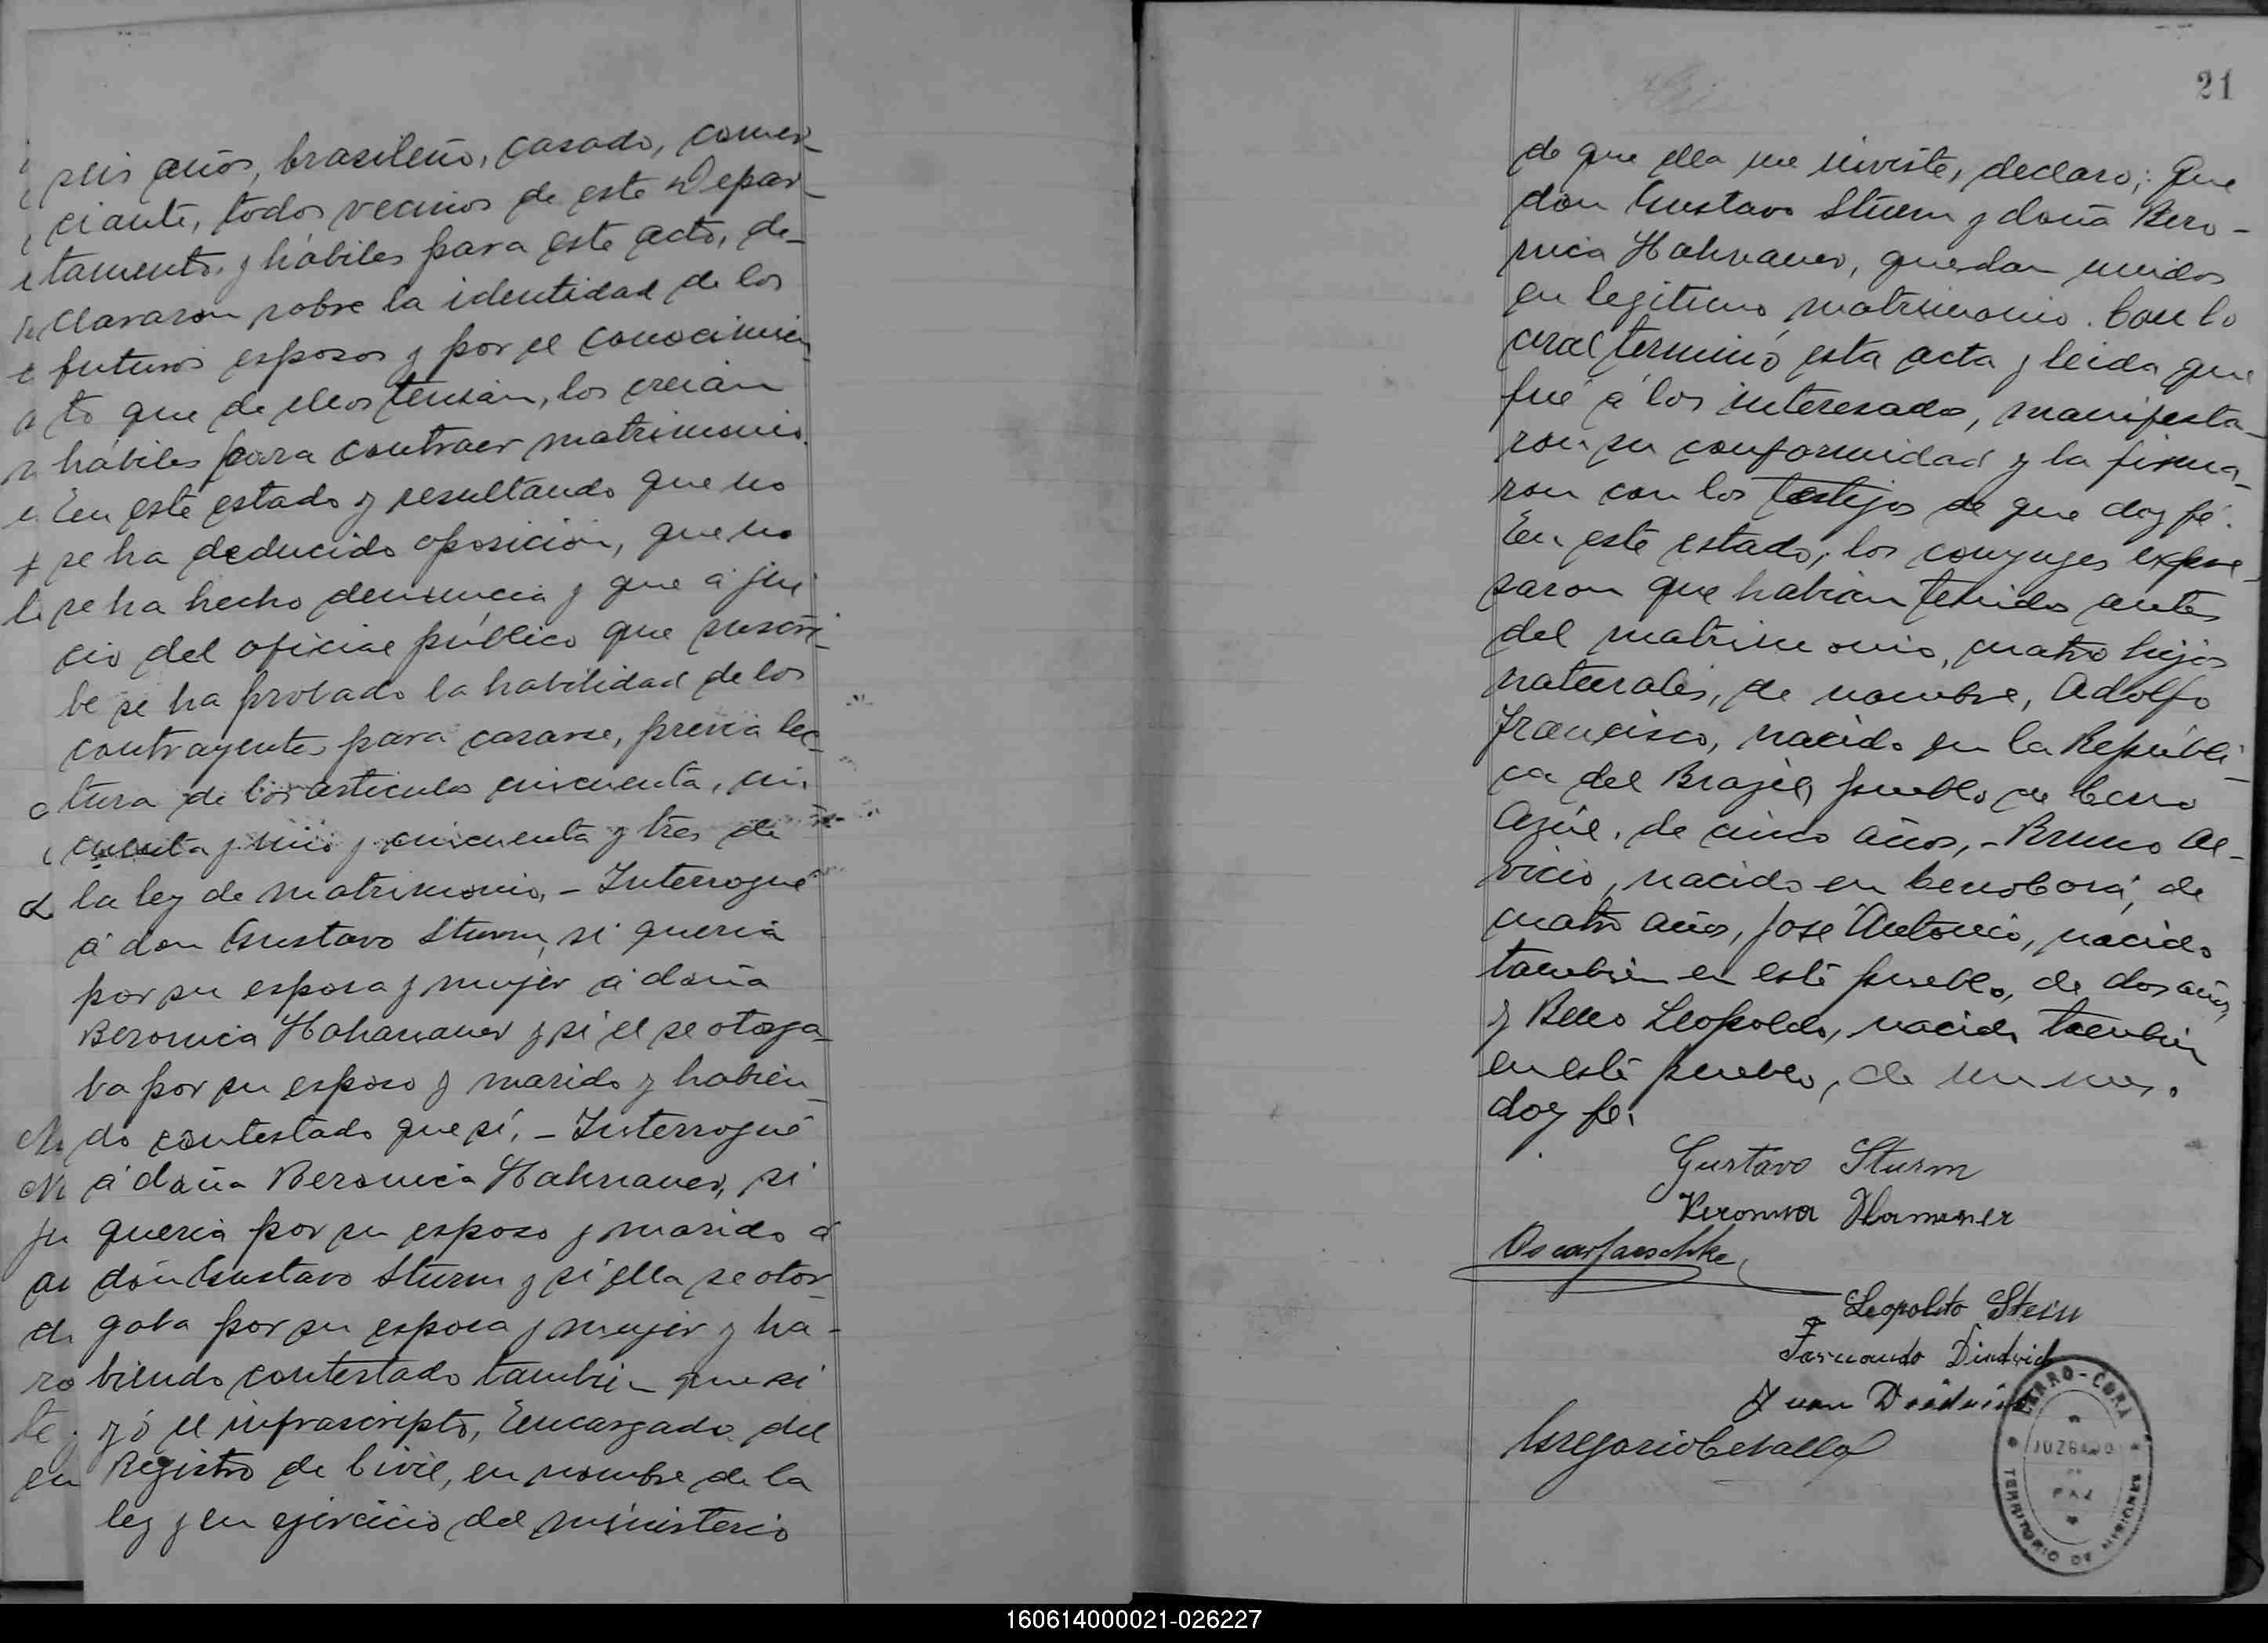 seis años, brasileño, casado, comer-
ciante, todos vecinos de este Depar-
tamento, y hábiles para este acto, de-
clararon sobre la identidad de los
futuros esposos y por el conocimien-
to que de ellos tenian, los creian
hábiles para contraer matrimonio.
En este estado y resultando que no
se ha deducido oposicion, que no
se ha hecho denuncia y que á jui-
cio del oficial público que suscri-
be se ha probado la habilidad de los
contrayentes para casarse, previa lec-
tura de los articulos cincuenta, cin-
cuenta y uno y cincuenta y tres de
la ley de matrimonio, - Interrogué
á don Gustavo Sturm, si queria
por su esposa y mujer á doña
Beronica Hahanauer y si el se otorga-
ba por su esposo y marido y habien-
do contestado que sí, - Interrogué
á doña Beronica Hahnauer, si
queria por su esposo y marido á
don Gustavo Sturm y si ella se otor-
gaba por su esposa y mujer y ha-
biendo contestado tambien que si
yó el infrascripto, Encargado del
Registro de Civil, en nombre de la
ley y en ejercicio del ministerio
21
de que ella me inviste, declaro; Que
don Gustavo Sturm y doña Bero-
nica Hahnauer, quedan unidos
en legitimo matrimonio. Con lo
cual terminó esta acta y leida que
fué á los interesados, manifesta-
ron su conformidad y la firma-
ron con los testijos de que doy fé.
En este estado, los conyuges expre-
saron que habian tenido antes
del matrimonio, cuatro hijos
naturales, de nombre, Adolfo
Francisco, nacido en la Republi-
ca del Brazil, pueblo de Cerro
Azúl, de cinco años, - Bruno Al-
vicio, nacido en Cerro Corá, de
cuatro años, José Antonio, nacido
tambien en este pueblo, de dos años,
y Leopoldo, nacido tambien
en este pueblo, de un mes.
doy fe.
Gustavo Sturm
Veronica
Oscar Jaeschke
Leopoldo Stein
Fernando Dindrich
Juan
Gregorio Cevallo
CERRO-CORÁ
JUZGADO
DE
PAZ
TERRITORIO DE MISIONES
160614000021-026227